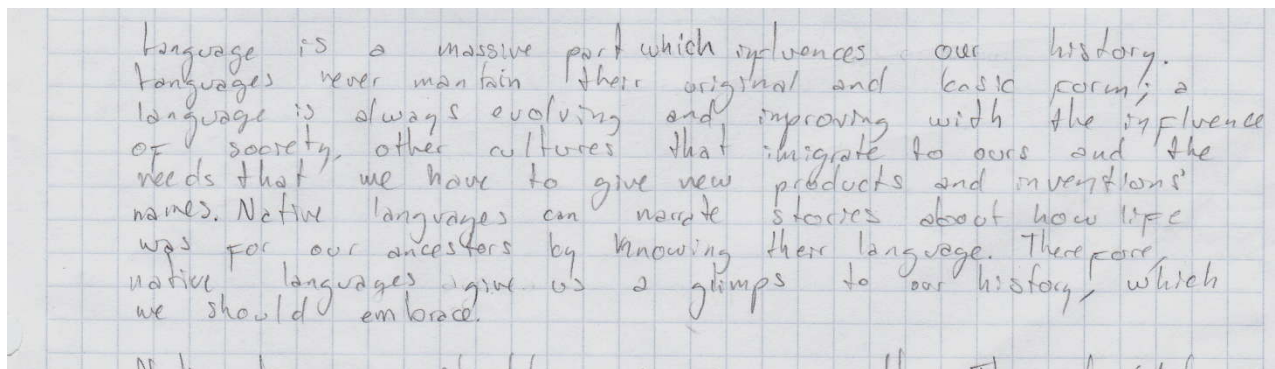 Language is a massive part which influences our history.
Languages never mantain their original and basic form; a
language is always evolving and improving with the influence
of society, other cultures that imigrate to ours and the
needs that we have to give new products and inventions'
names. Native languages can narrate stories about how life
was for our ancestors by knowing their language. Therefore,
native languages give us a glimps to our history, which
we should embrace.